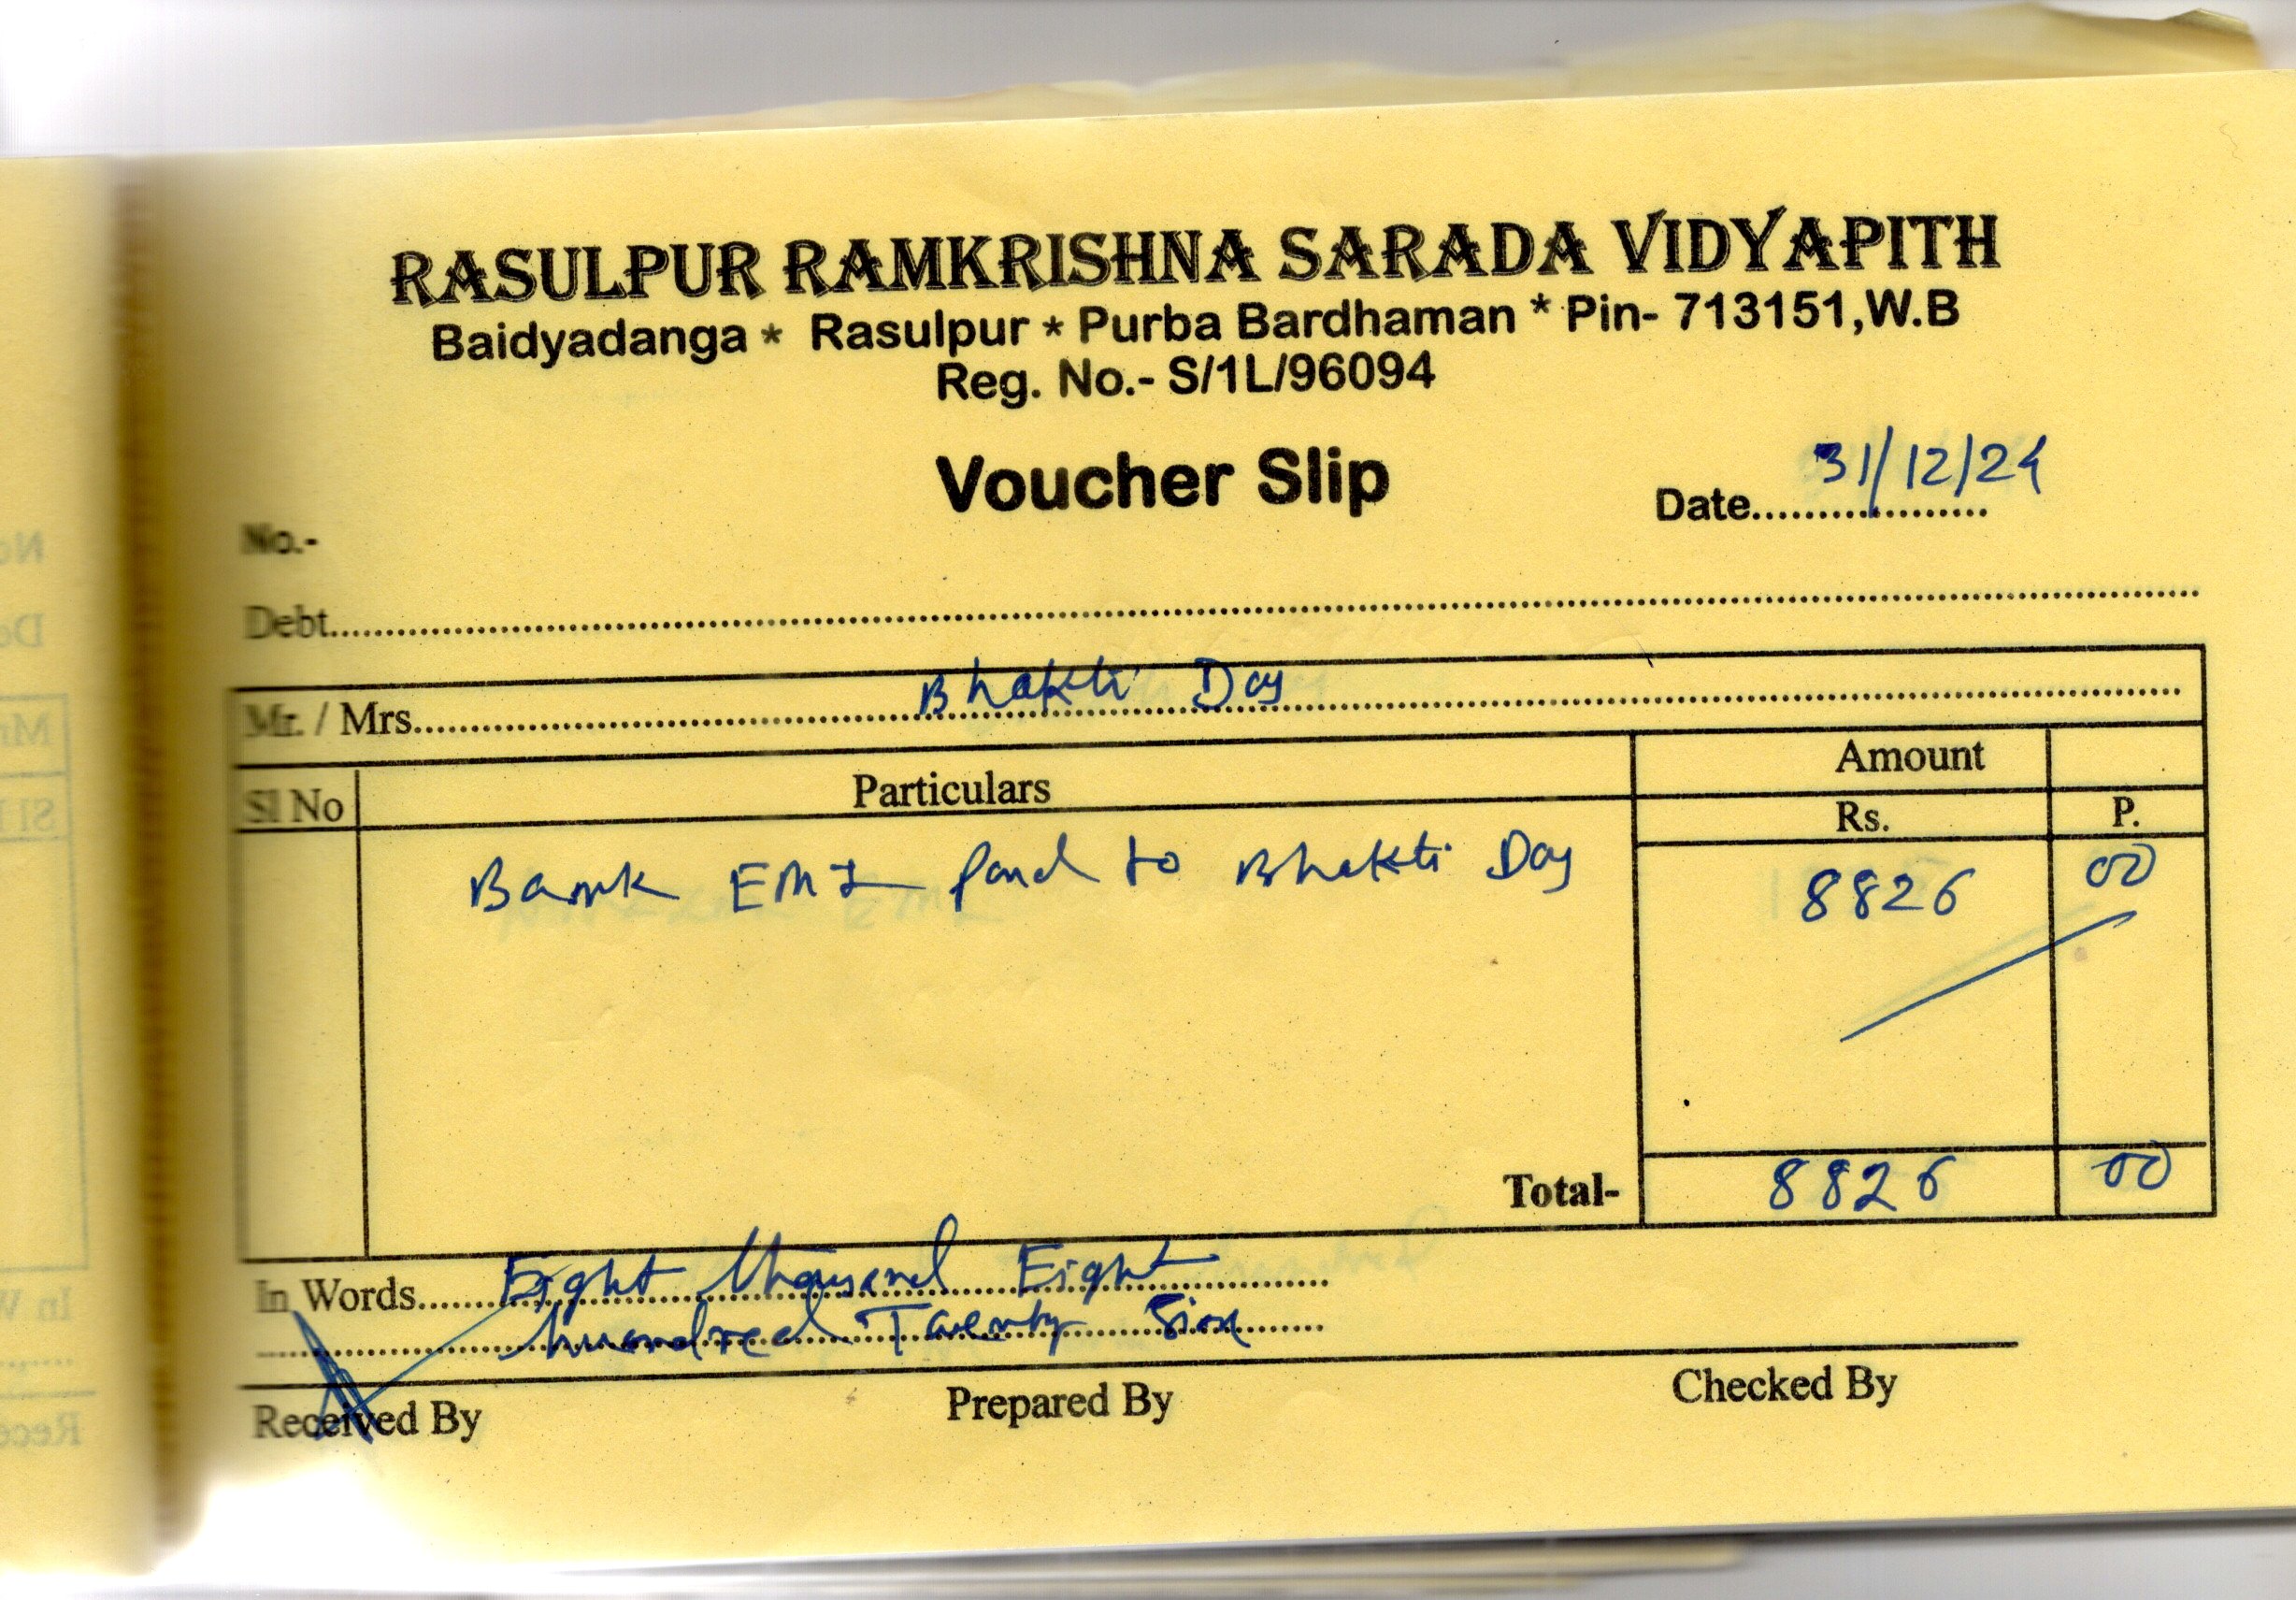 RASULPUR RAMKRISHNA SARADA VIDYAPITH
Baidyadanga * Rasulpur * Purba Bardhaman * Pin- 713151,W.B
Reg. No.- S/1L/96094
Voucher Slip
Date.................. 31/12/24
No.-
Debt..........
Mr. / Mrs.......... Bhakti Day
Sl No Particulars Amount
Rs. P.
Bank EMI paid to Bhakti Day 8826 00
Total- 8826 00
In Words...... Eight thousand Eight
hundred Twenty Six
Received By Prepared By Checked By